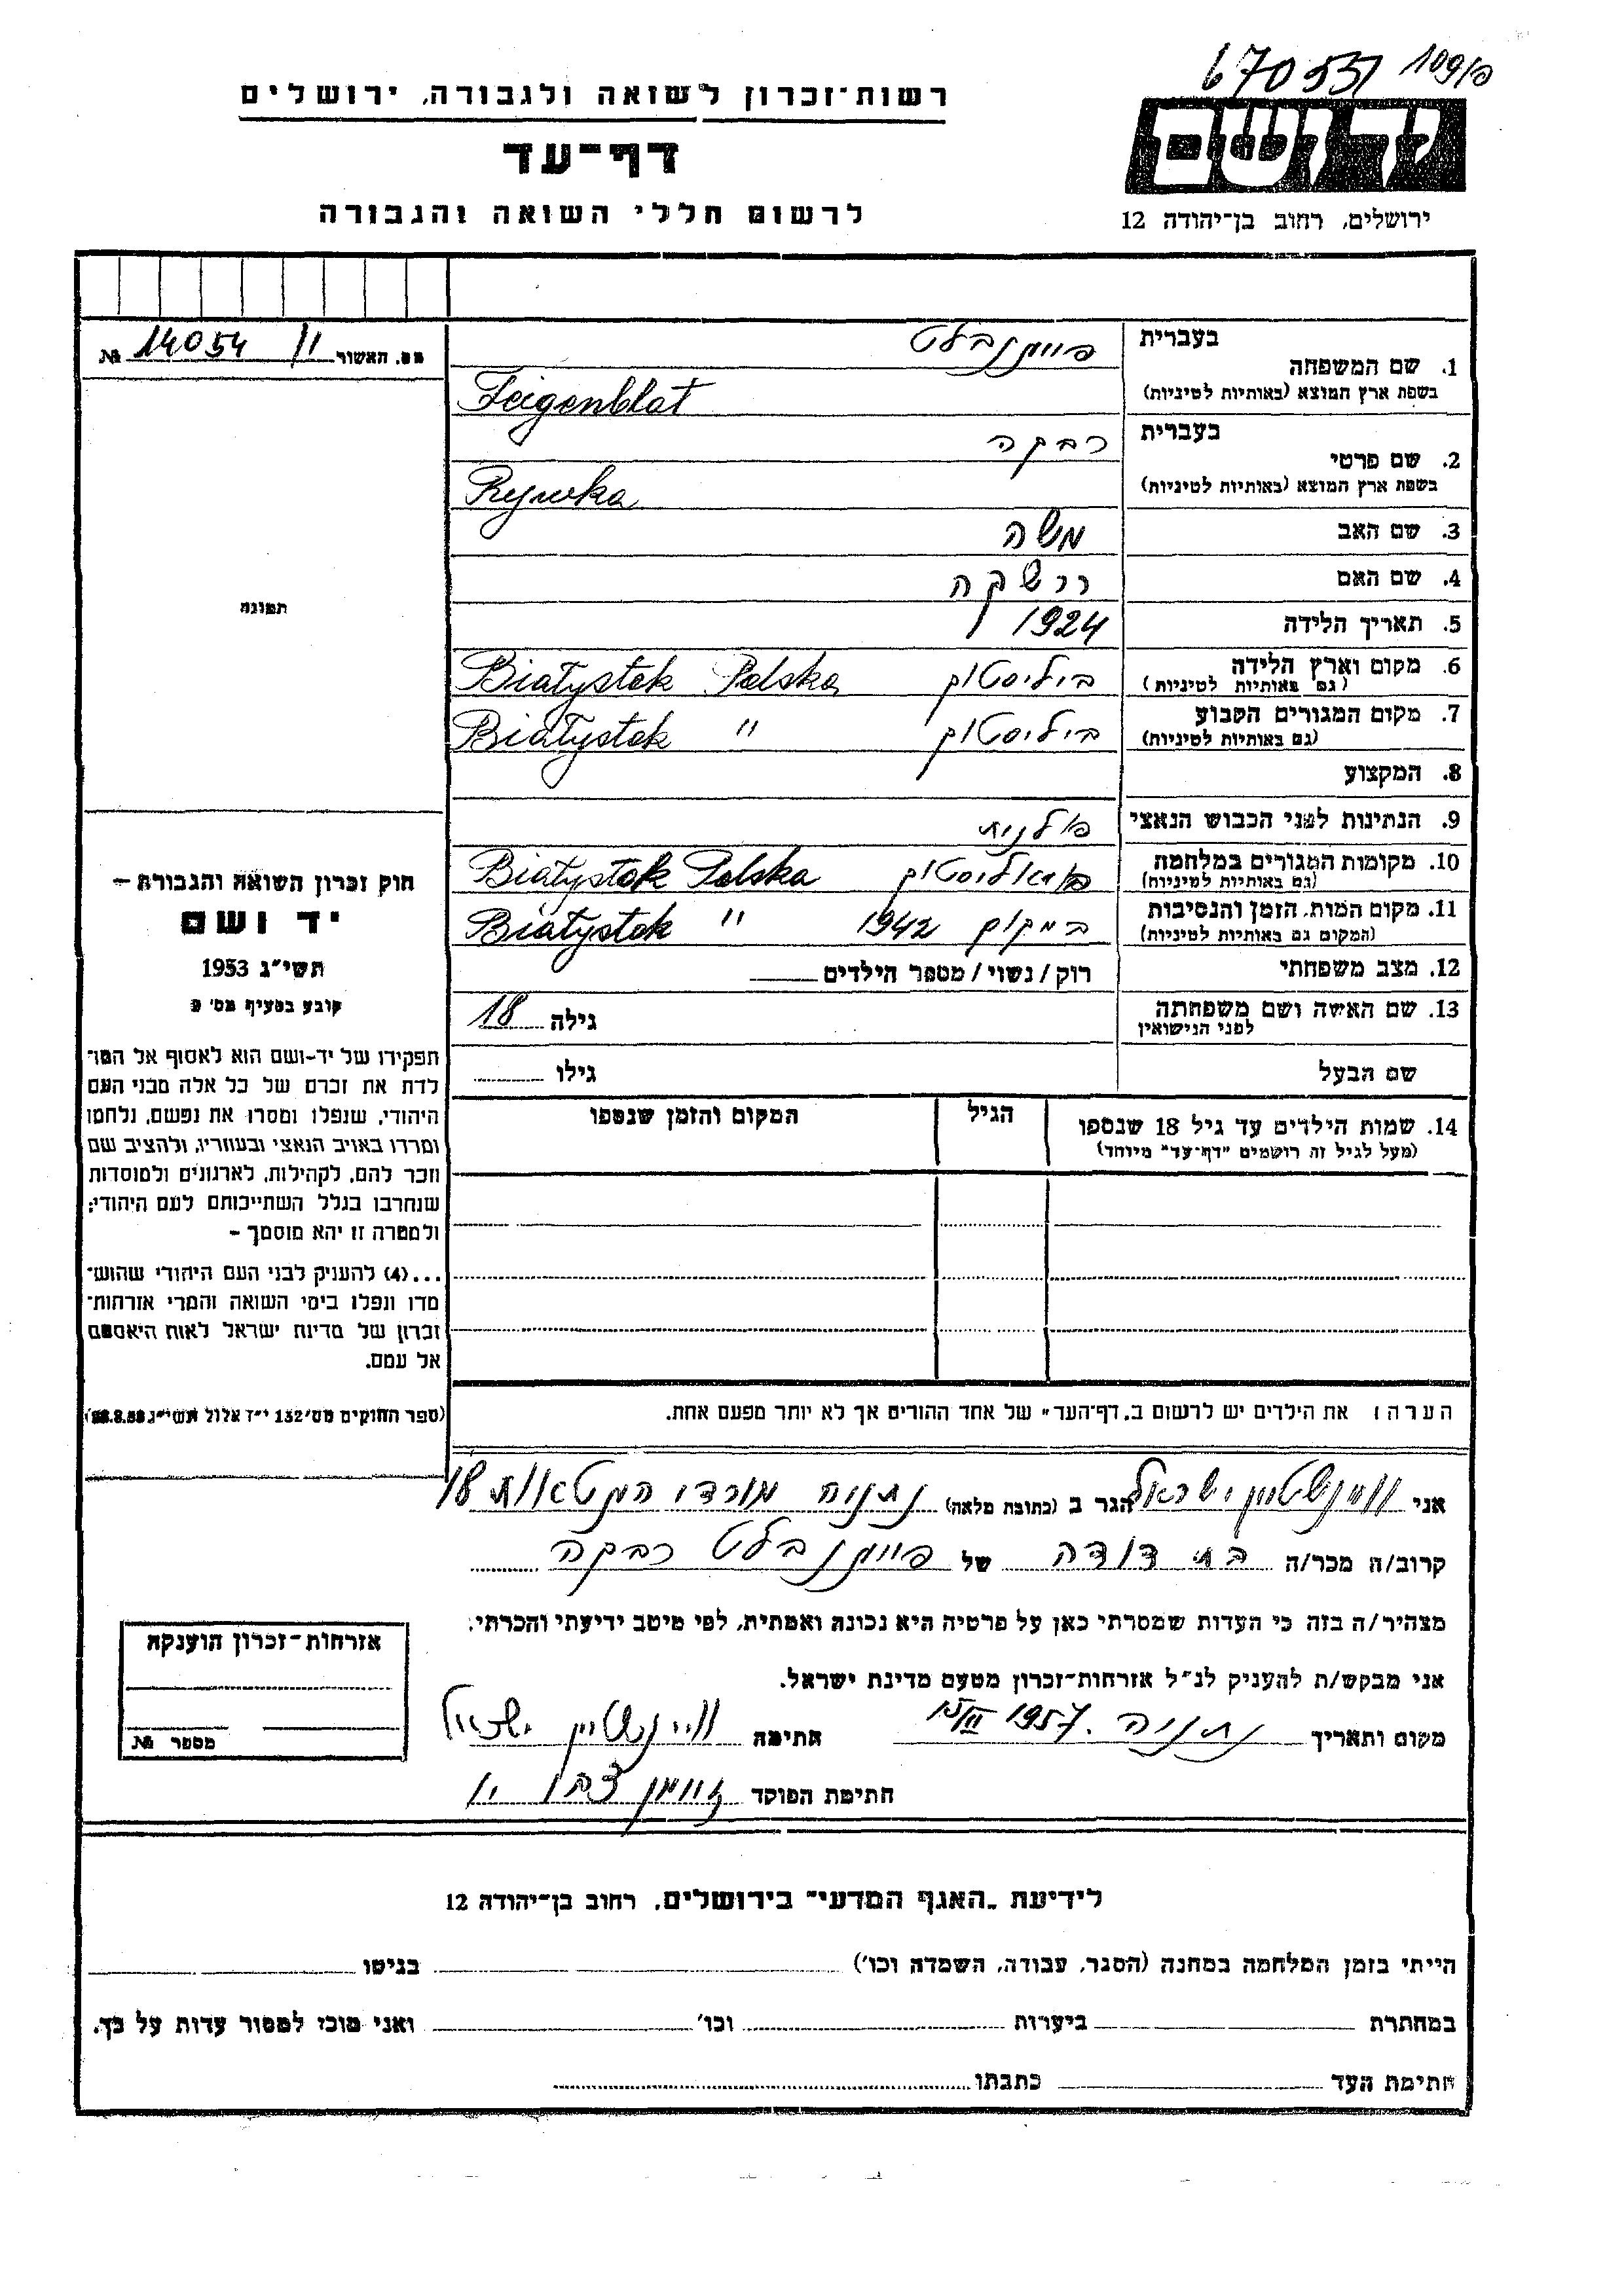 670537 109/פ
רשות-זכרון לשואה ולגבורה, ירושלים
ידושם
דף-עד
לרשום חללי השואה והגבורה
ירושלים, רחוב בן-יהודה 12
מס. האשור 14054 / וו №
1. שם המשפחה בעברית פייגנבלט
בשפת ארץ המוצא (באותיות לטיניות) Feigenblat
2. שם פרטי בעברית רבקה
בשפת ארץ המוצא (באותיות לטיניות) Rywka
3. שם האב משה
4. שם האם
5. תאריך הלידה 1924
6. מקום וארץ הלידה ביליסטוק Białystok Polska
(גם באותיות לטיניות)
7. מקום המגורים הקבוע ביליסטוק Białystok "
(גם באותיות לטיניות)
8. המקצוע
9. הנתינות לפני הכבוש הנאצי פולנית
10. מקומות המגורים במלחמה Białystok Polska
(גם באותיות לטיניות)
11. מקום המות, הזמן והנסיבות במקום 1942 Białystok "
(המקום גם באותיות לטיניות)
12. מצב משפחתי רוק/נשוי/מספר הילדים
13. שם האשה ושם משפחתה גילה 18
לפני הנישואין
שם הבעל גילו
14. שמות הילדים עד גיל 18 שנספו הגיל המקום והזמן שנספו
(מעל לגיל זה רושמים "דף-עד" מיוחד)
הערה: את הילדים יש לרשום ב"דף-העד" של אחד ההורים אך לא יותר מפעם אחת.
תמונה
חוק זכרון השואה והגבורה –
יד ושם
תשי"ג 1953
קובע בסעיף מס' 2
תפקידו של יד-ושם הוא לאסוף אל המו־
לדת את זכרם של כל אלה מבני העם
היהודי, שנפלו ומסרו את נפשם, נלחמו
ומרדו באויב הנאצי ובעוזריו, ולהציב שם
וזכר להם, לקהילות, לארגונים ולמוסדות
שנחרבו בגלל השתייכותם לעם היהודי;
ולמטרה זו יהא מוסמך –
...(4) להעניק לבני העם היהודי שהוש־
מדו ונפלו בימי השואה והמרי אזרחות־
זכרון של מדינת ישראל לאות היאספם
אל עמם.
(ספר החוקים מס' 132 י"ז אלול תשי"ג 28.8.53)
אני ויינשטיין ישראל הגר ב (כתובת מלאה) נתניה מורדי הגטאות 18
קרוב/ה מכר/ה בת דודה של פייגנבלט רבקה
מצהיר/ה בזה כי העדות שמסרתי כאן על פרטיה היא נכונה ואמתית, לפי מיטב ידיעתי והכרתי.
אני מבקש/ת להעניק לנ"ל אזרחות-זכרון מטעם מדינת ישראל.
מקום ותאריך נתניה. 15/III 1957 חתימה ויינשטיין ישראל
חתימת הפוקד
אזרחות-זכרון הוענקה
מספר №
לידיעת "האגף המדעי" בירושלים, רחוב בן-יהודה 12
הייתי בזמן המלחמה במחנה (הסגר, עבודה, השמדה וכו') בגיטו
במחתרת ביערות וכו' ואני מוכן למסור עדות על כך.
חתימת העד כתבתו